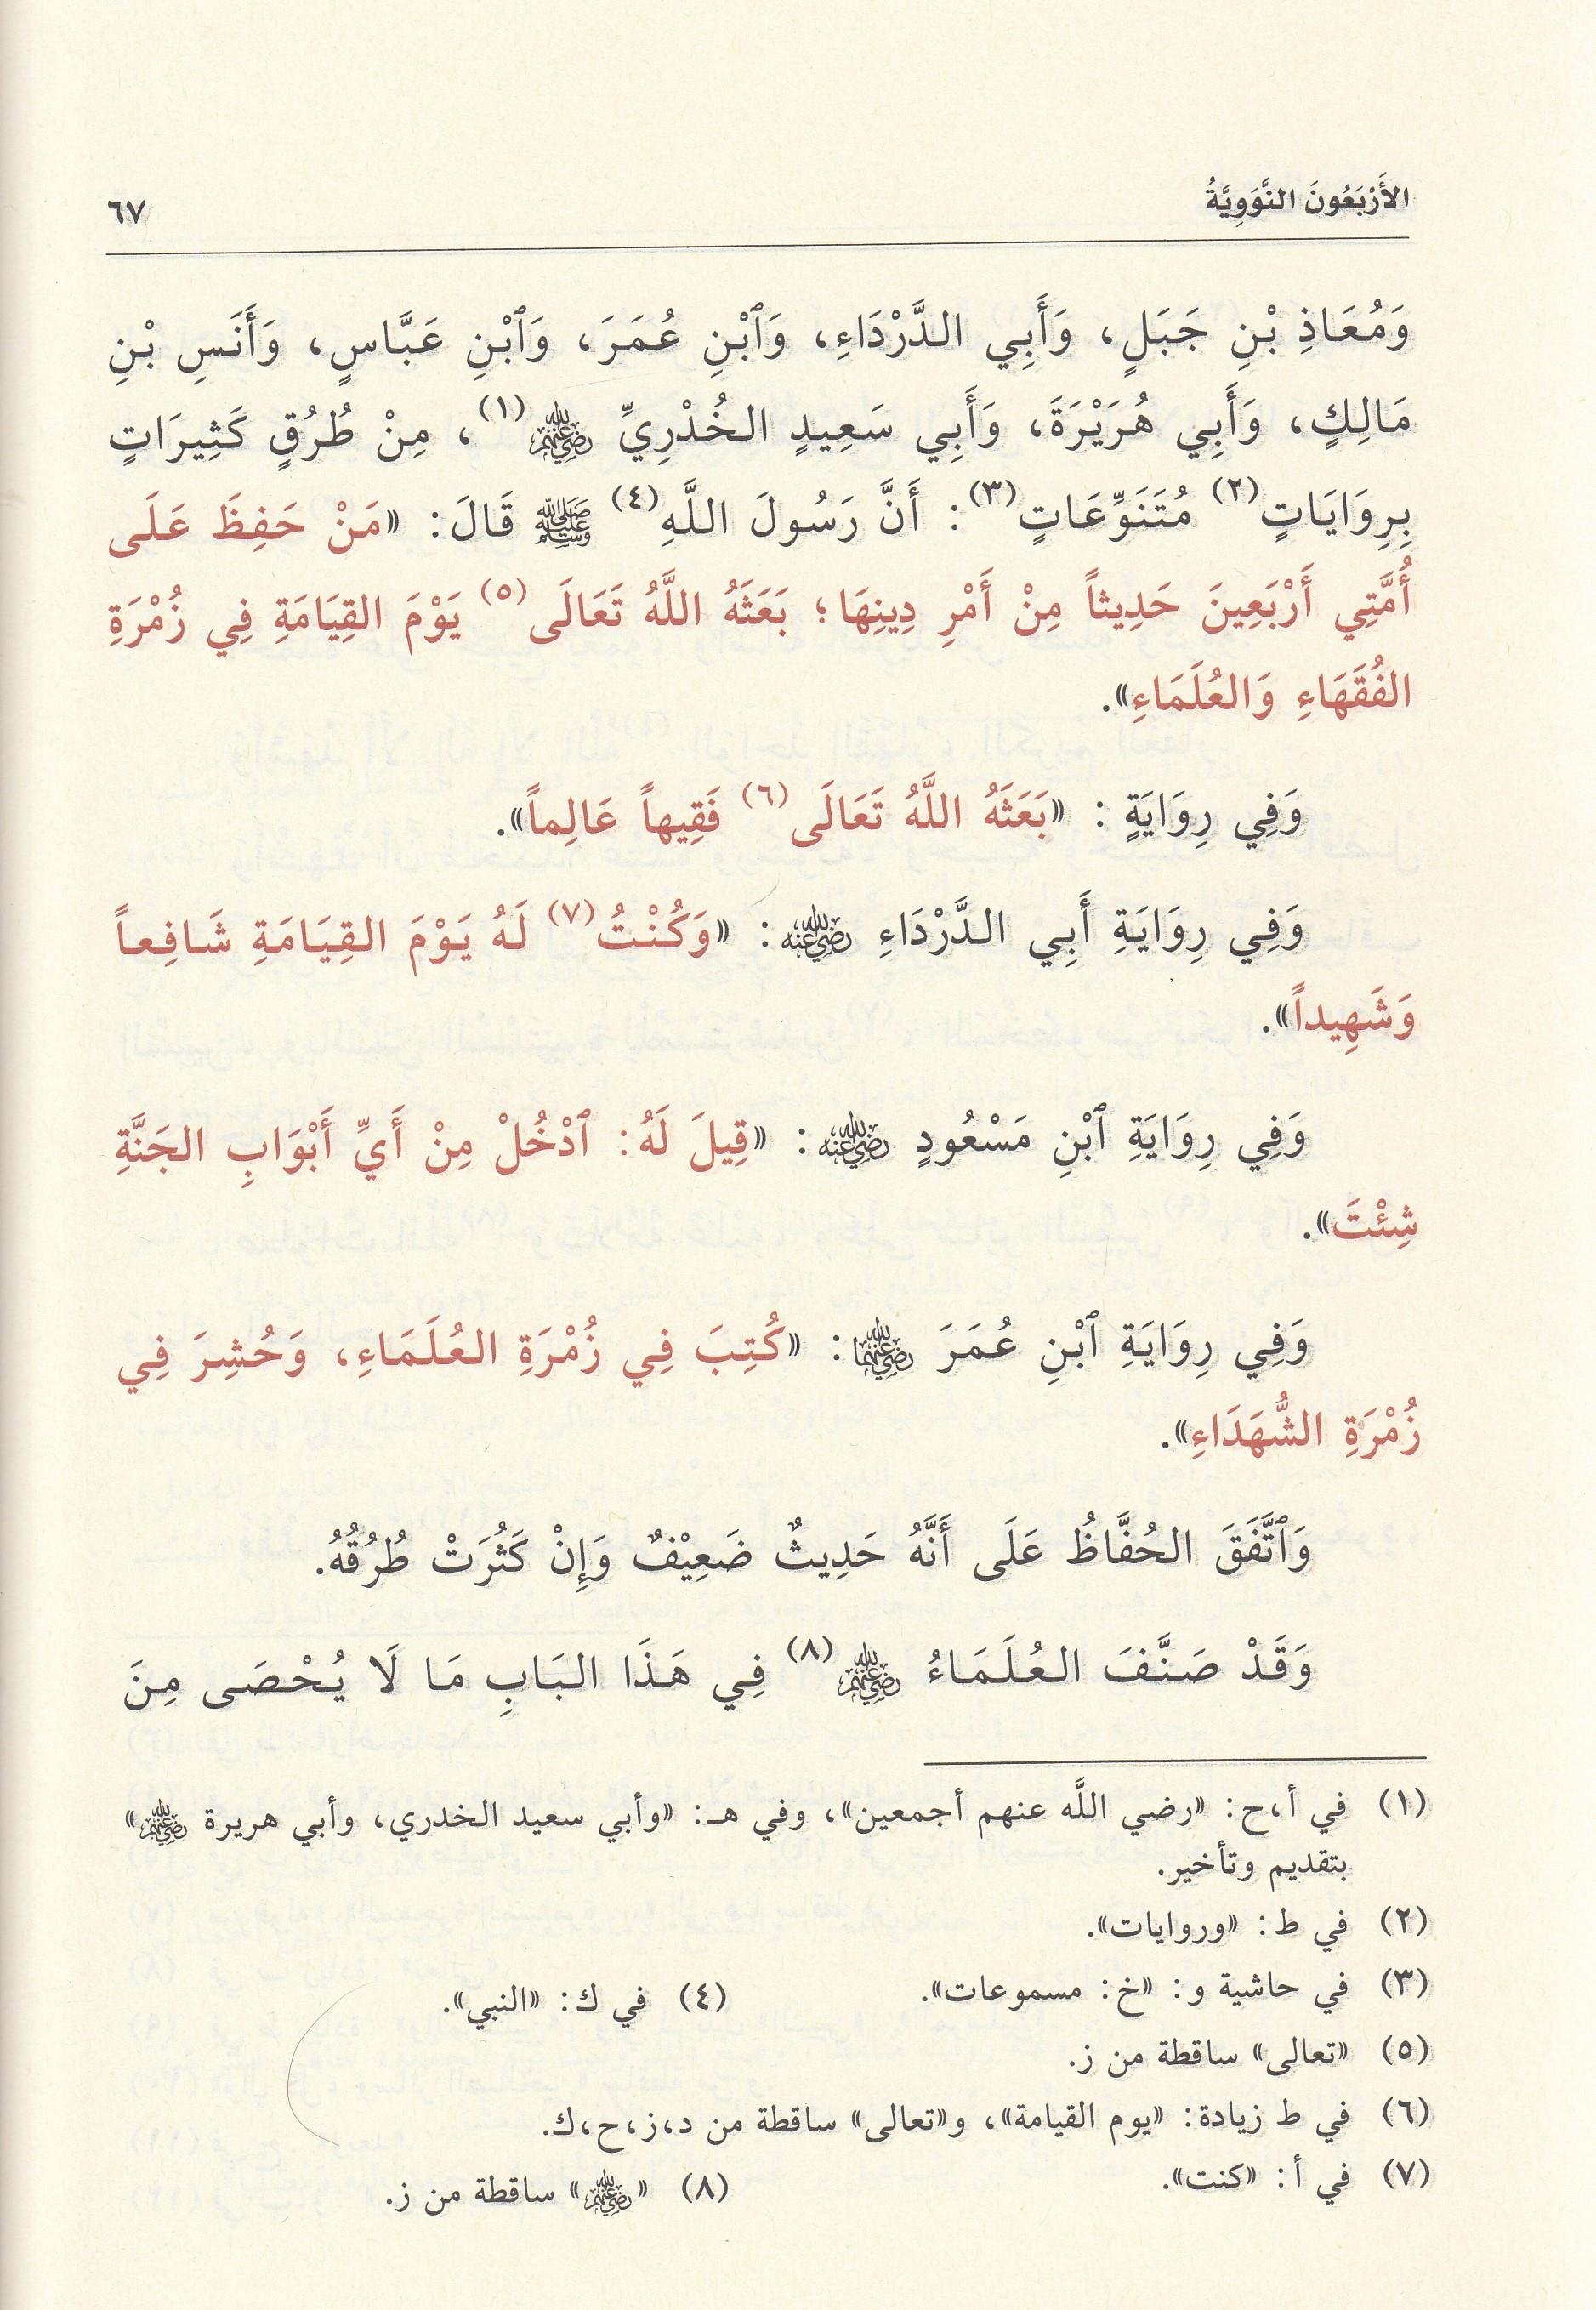 الأَرْبَعُونَ النَّوَوِيَّةُ
٦٧
وَمُعَاذِ بْنِ جَبَلٍ، وَأَبِي الدَّرْدَاءِ، وَٱبْنِ عُمَرَ، وَٱبْنِ عَبَّاسٍ، وَأَنَسِ بْنِ
مَالِكٍ، وَأَبِي هُرَيْرَةَ، وَأَبِي سَعِيدٍ الخُدْرِيِّ رضي الله عنهم(١)، مِنْ طُرُقٍ كَثِيرَاتٍ
بِرِوَايَاتٍ(٢) مُتَنَوِّعَاتٍ(٣): أَنَّ رَسُولَ اللَّهِ(٤) ﷺ قَالَ: «مَنْ حَفِظَ عَلَى
أُمَّتِي أَرْبَعِينَ حَدِيثاً مِنْ أَمْرِ دِينِهَا؛ بَعَثَهُ اللَّهُ تَعَالَى(٥) يَوْمَ القِيَامَةِ فِي زُمْرَةِ
الفُقَهَاءِ وَالعُلَمَاءِ».
وَفِي رِوَايَةٍ: «بَعَثَهُ اللَّهُ تَعَالَى(٦) فَقِيهاً عَالِماً».
وَفِي رِوَايَةِ أَبِي الدَّرْدَاءِ رضي الله عنه: «وَكُنْتُ(٧) لَهُ يَوْمَ القِيَامَةِ شَافِعاً
وَشَهِيداً».
وَفِي رِوَايَةِ ٱبْنِ مَسْعُودٍ رضي الله عنه: «قِيلَ لَهُ: ٱدْخُلْ مِنْ أَيِّ أَبْوَابِ الجَنَّةِ
شِئْتَ».
وَفِي رِوَايَةِ ٱبْنِ عُمَرَ رضي الله عنهما: «كُتِبَ فِي زُمْرَةِ العُلَمَاءِ، وَحُشِرَ فِي
زُمْرَةِ الشُّهَدَاءِ».
وَٱتَّفَقَ الحُفَّاظُ عَلَى أَنَّهُ حَدِيثٌ ضَعِيْفٌ وَإِنْ كَثُرَتْ طُرُقُهُ.
وَقَدْ صَنَّفَ العُلَمَاءُ رضي الله عنهم(٨) فِي هَذَا البَابِ مَا لَا يُحْصَى مِنَ
(١) في أ،ح: «رضي اللَّه عنهم أجمعين»، وفي هـ: «وأبي سعيد الخدري، وأبي هريرة رضي الله عنهم»
بتقديم وتأخير.
(٢) في ط: «وروايات».
(٣) في حاشية و: «خ: مسموعات». (٤) في ك: «النبي».
(٥) «تعالى» ساقطة من ز.
(٦) في ط زيادة: «يوم القيامة»، و«تعالى» ساقطة من د،ز،ح،ك.
(٧) في أ: «كنت». (٨) «رضي الله عنهم» ساقطة من ز.